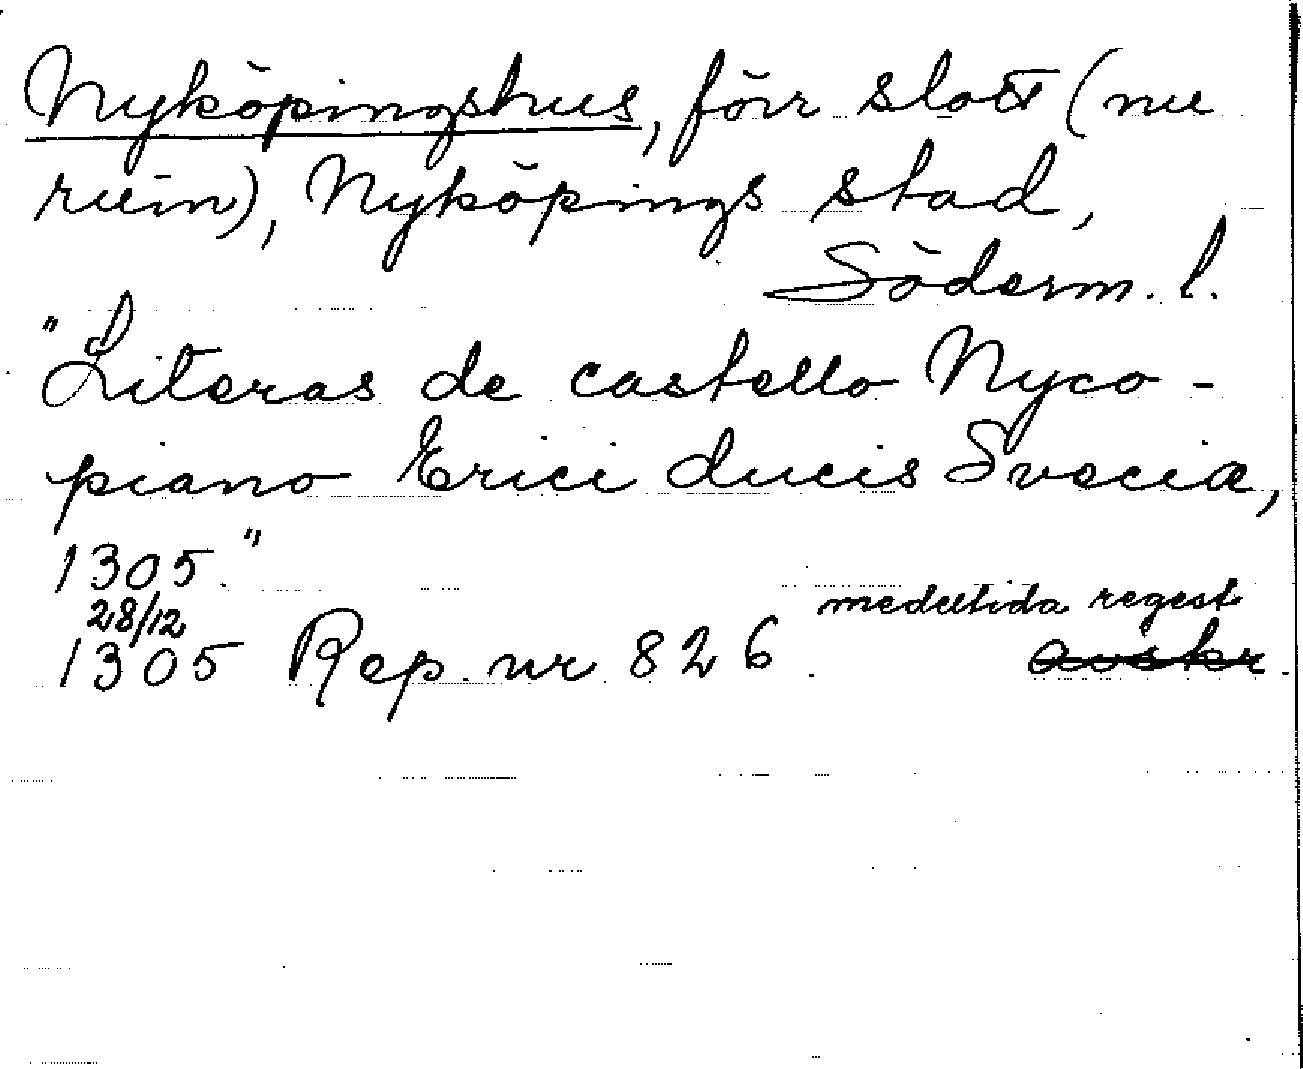 Nyköpingshus, förr slott (nu
ruin), Nyköpings stad,
Söderm. l.
"Literas de castello Nyco-
piano Erici ducis Sveciæ,
1305."
28/12 medeltida regest
1305 Rep. nr 826. avskr.